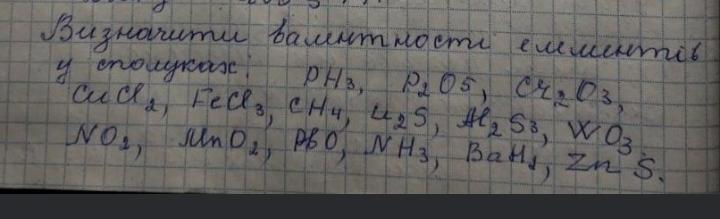 Визначити валентности елементів
у сполуках: PH3, P2O5, Cr2O3,
CuCl2, FeCl3, CH4, Li2S, Al2S3, WO3,
NO2, MnO2, PbO, NH3, BaH2, ZnS.